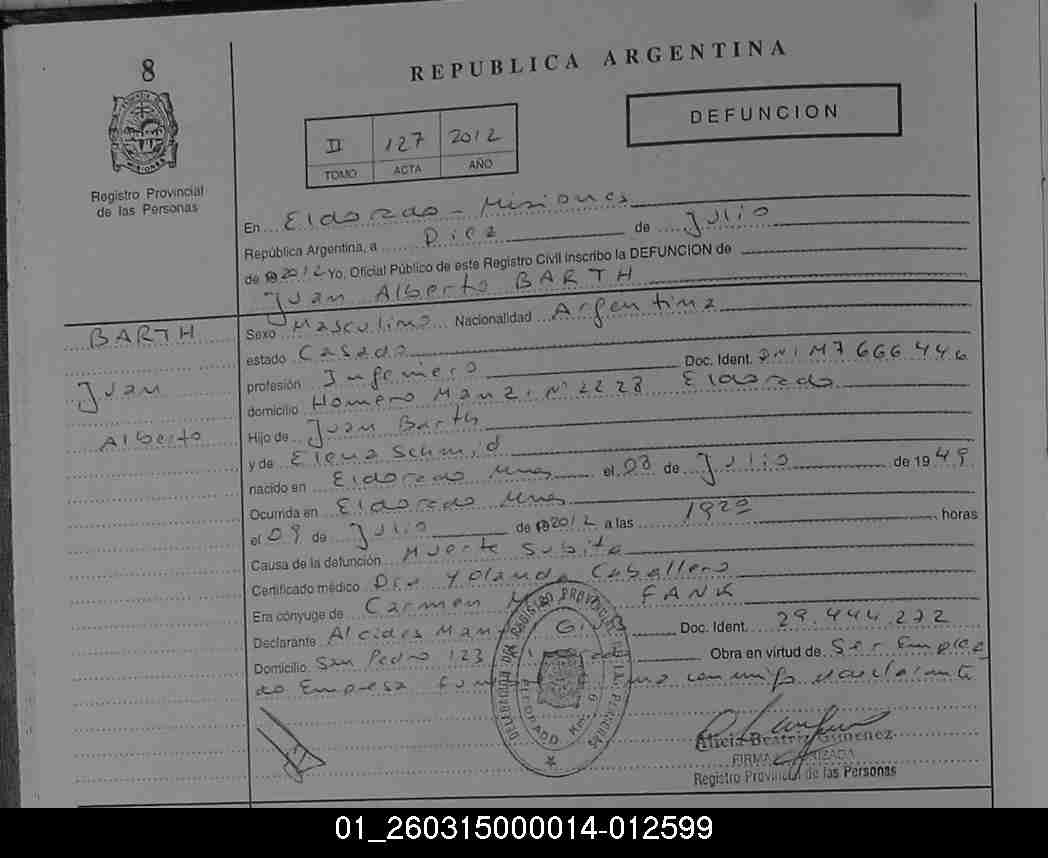 8
REPUBLICA ARGENTINA
DEFUNCION
II 127 2012
TOMO ACTA AÑO
Registro Provincial
de las Personas
En Eldorado - Misiones
República Argentina, a Diez de Julio
de 2012 Yo, Oficial Público de este Registro Civil inscribo la DEFUNCION de
Juan Alberto BARTH
BARTH
Juan
Alberto
Sexo Masculino Nacionalidad Argentina
estado Casado
profesión Ingeniero Doc. Ident. DNI M7 666 446
domicilio Homero Manzi Nº 2228 Eldorado
Hijo de Juan Barth
y de Elena Schmid
nacido en Eldorado Mnes el 03 de Julio de 1949
Ocurrida en Eldorado Mnes
el 09 de Julio de 2012 a las 1920 horas
Causa de la defunción Muerte Subita
Certificado médico Dra Yolanda Caballero
Era cónyuge de Carmen FANK
Declarante Alcides Doc. Ident. 29.444.272
Domicilio San Pedro 123 Obra en virtud de Ser Emplea
do Empresa
DELEGACION DEL REGISTRO PROVINCIAL DE LAS PERSONAS
ELDORADO Km.
Alicia Beatriz Gimenez
FIRMA AUTORIZADA
Registro Provincial de las Personas
01_260315000014-012599